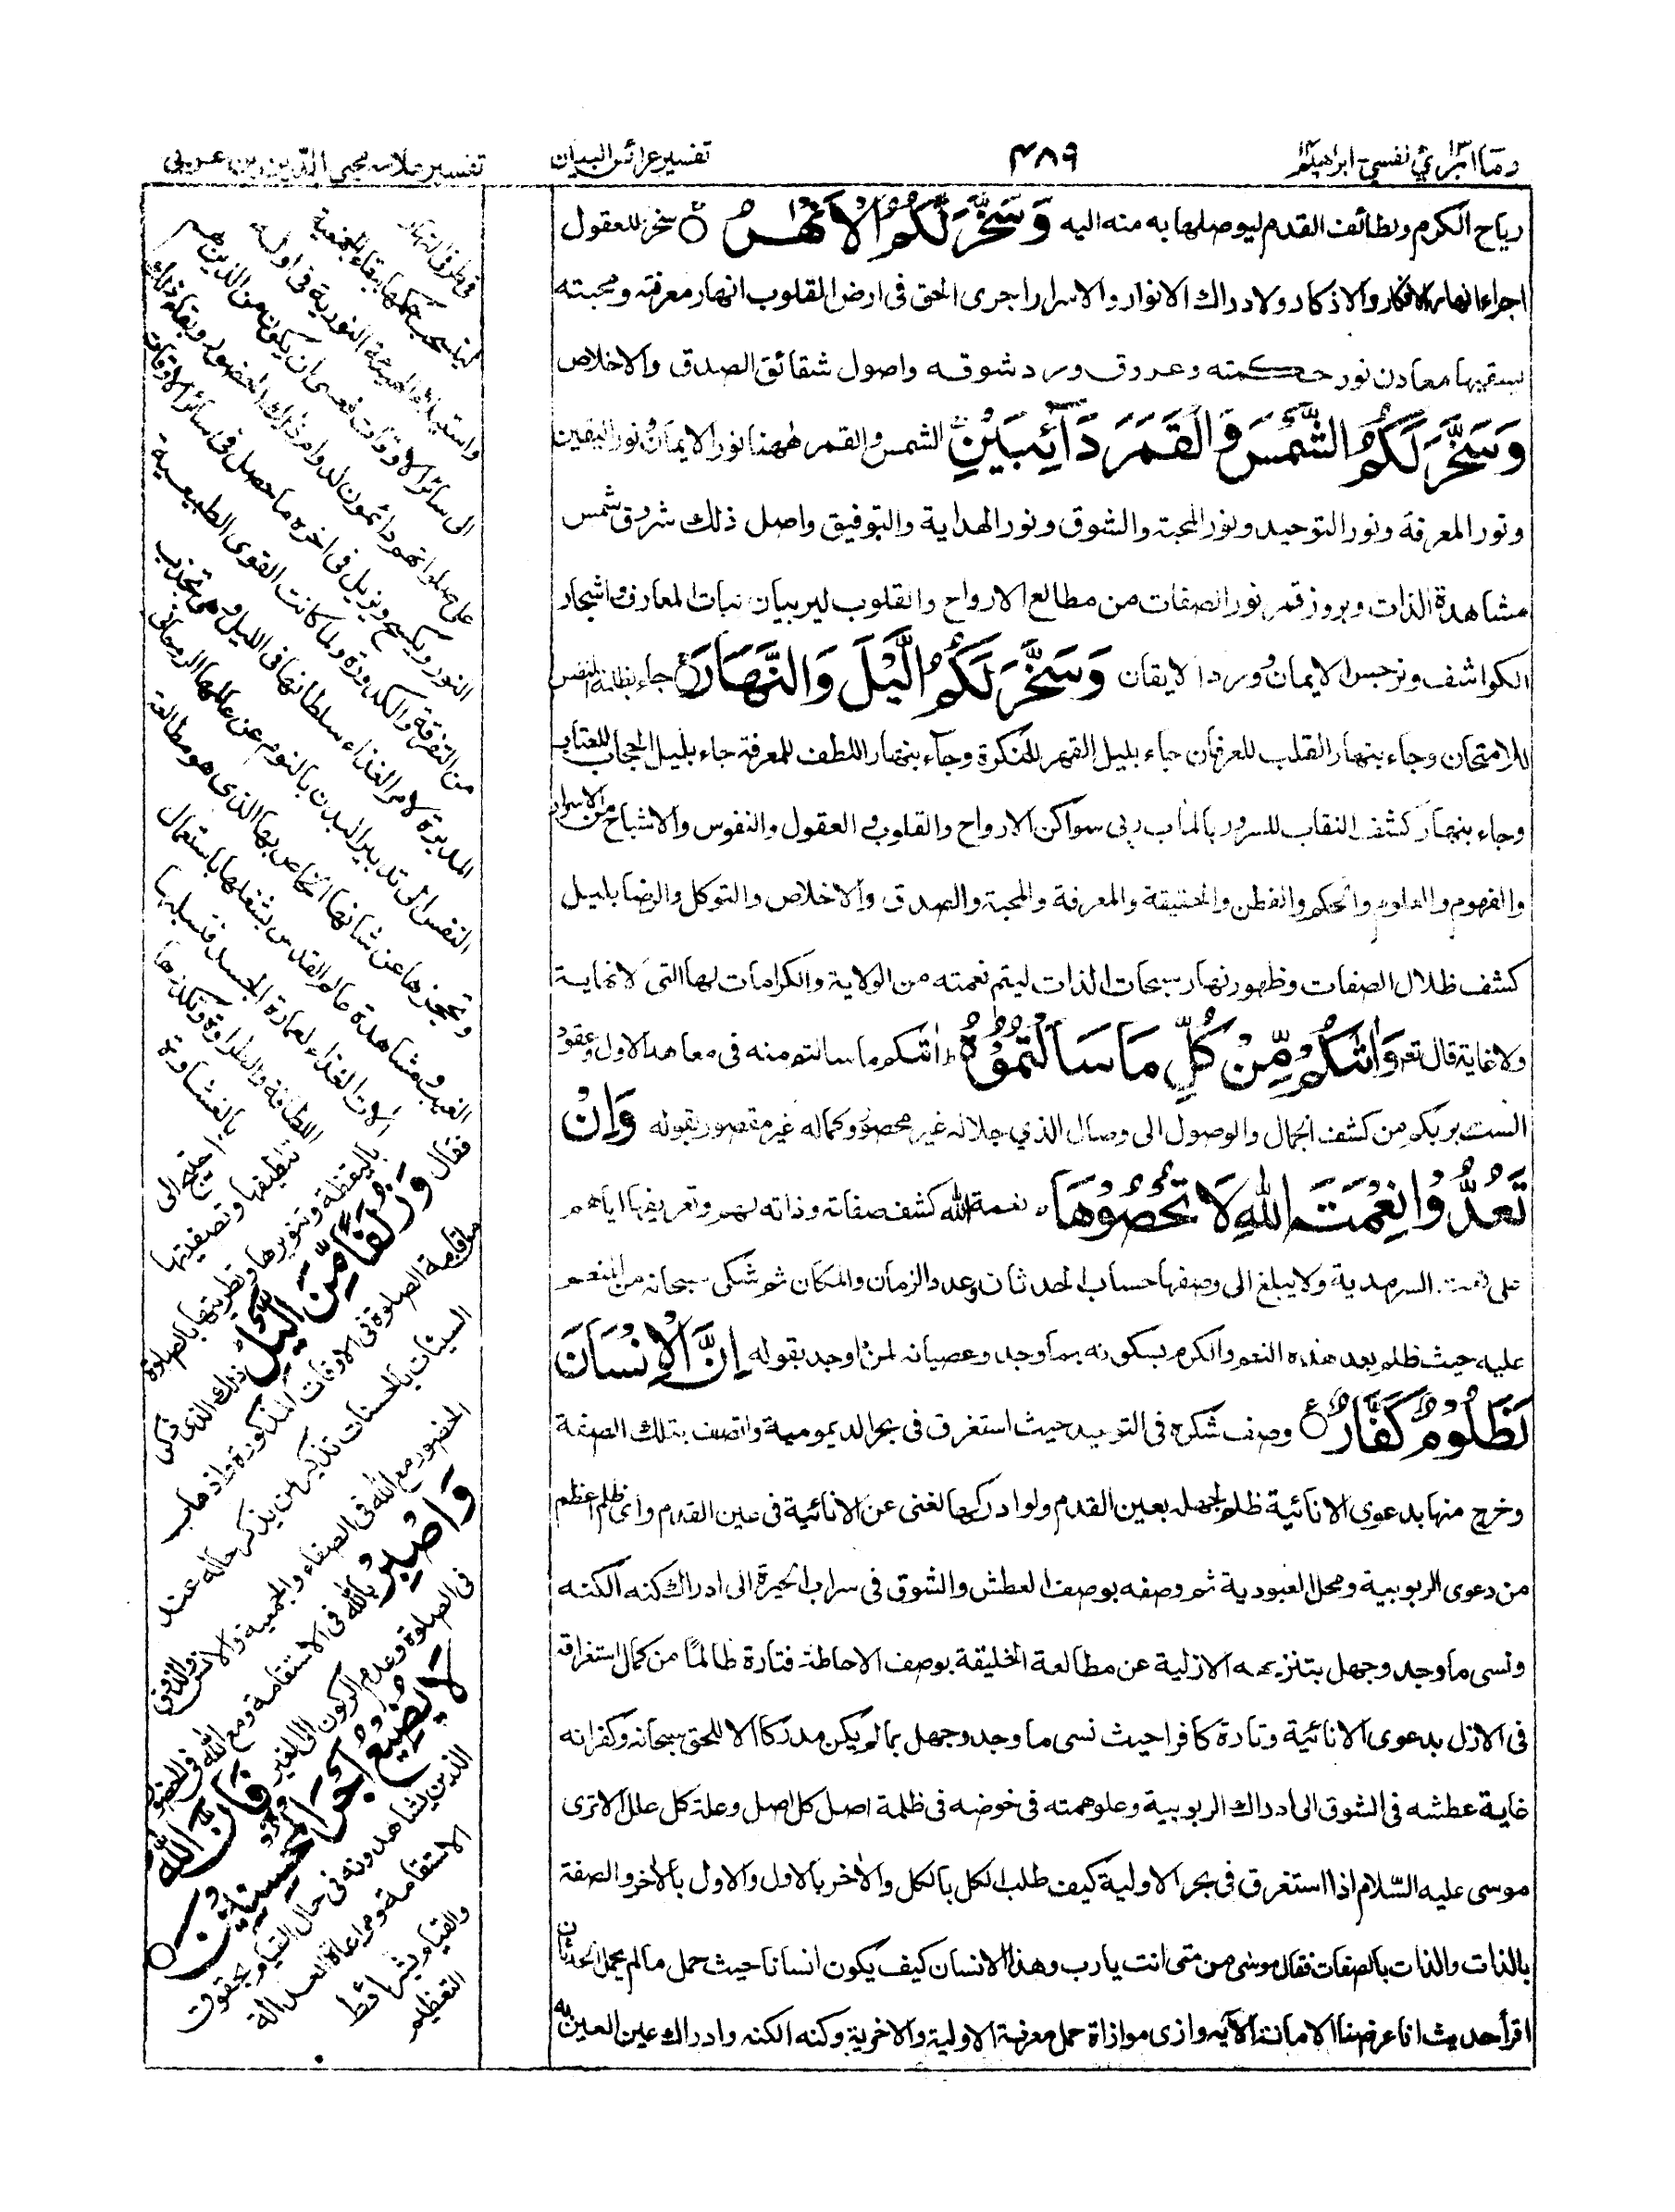 وما ابرئ نفسي ١٣ ابراهيم ١٤
٤٨٩
تفسير عرائس البيان
تفسير علامه محيي الدين بن عربي
رياح الكرم ولطائف القدم ليوصلها به منه اليه وَسَخَّرَ لَكُمُ الْاَنْهٰرَ سخر للعقول
اجراء انهار الافكار والاذكار ولادراك الانوار والاسرار اجرى الحق فى ارض القلوب انهار معرفته ومحبته
يسقيها معادن نور حكمته وعروق ورد شوقه واصول شقائق الصدق والاخلاص
وَسَخَّرَ لَكُمُ الشَّمْسَ وَالْقَمَرَ دَآئِبَيْنِ الشمس والقمر ههنا نور الايمان ونور اليقين
ونور المعرفة ونور التوحيد ونور المحبة والشوق ونور الهداية والتوفيق واصل ذلك شروق شمس
مشاهدة الذات وبروز قمر نور الصفات من مطالع الارواح والقلوب ليربيان نبات المعارف واشجار
الكواشف ونرجس الايمان وورد الايقان وَسَخَّرَ لَكُمُ الَّيْلَ وَالنَّهَارَ جاء بظلمة النفس
للامتحان وجاء بنهار القلب للعرفان جاء بليل القهر للنكرة وجاء بنهار اللطف للمعرفة جاء بليل الحجاب للعتاب
وجاء بنهار كشف النقاب للسرور بالمآب ربى سواكن الارواح والقلوب والعقول والنفوس والاشباح من الاسرار
والفهوم والعلوم والحكم والفطن والحقيقة والمعرفة والمحبة والصدق والاخلاص والتوكل والرضا بليل
كشف ظلال الصفات وظهور نهار سبحات الذات ليتم نعمته من الولاية والكرامات لها التى لا نهاية
ولا غاية قال تعر وَاٰتٰىكُمْ مِّنْ كُلِّ مَا سَاَلْتُمُوْهُ ط اتىكم ما سالتم منه فى معاهد الاول وعقود
الست بربكم من كشف الجمال والوصول الى وصال الذي جلاله غير محصور وكماله غير مقصور بقوله وَاِنْ
تَعُدُّوْا نِعْمَتَ اللّٰهِ لَا تُحْصُوْهَا نعمة الله كشف صفاته وذاته لهم وتعريفها اياهم
على نعت السرمدية ولا يبلغ الى وصفها حساب الحدثان وعدد الزمان والمكان ثم شكى سبحانه من المنعم
عليه حيث ظلم بعد هذه النعم والكرم بسكونه بما وجد وعصيانه لمن اوجد بقوله اِنَّ الْاِنْسَانَ
لَظَلُوْمٌ كَفَّارٌ وصف شكره فى التوحيد حيث استغرق فى بحر الديمومية واتصف بتلك الصفة
وخرج منها بدعوى الانائية ظلم لجهله بعين القدم ولو ادركها لغنى عن الانائية فى عين القدم واى ظلم اعظم
من دعوى الربوبية ومحل العبودية ثم وصفه بوصف العطش والشوق فى سراب الحيرة الى ادراك كنه الكنه
ونسى ما وجد وجهل بتنزيهه الازلية عن مطالعة الخليقة بوصف الاحاطة فتارة ظالما من كمال استغراقه
فى الازل بدعوى الانائية وتارة كافرا حيث نسى ما وجد وجهل بما لم يكن مدركا الا للحق سبحانه وكفرانه
غاية عطشه فى الشوق الى ادراك الربوبية وعلو همته فى خوضه فى ظلمة اصل كل اصل وعلة كل علل الا ترى
موسى عليه السلام اذا استغرق فى بحر الاولية كيف طلب الكل بالكل والاخر بالاول والاول بالاخر والصفة
بالذات والذات بالصفات فقال موسى من متى انت يا رب وهذا الانسان كيف يكون انسانا حيث حمل ما لم يحمل الحدثان
اقرأ حديث انا عرضنا الامانة الآية وازى موازاة حمل معرفة الاولية والاخرية وكنه الكنه وادراك عين العين به
فى طرفى النهار
لينسحب حكمها ببقاء الجمعية
واستيلاء الهيئة النورية فى اوله
الى سائر الاوقات فعسى ان يكون من الذين هم
على صلواتهم دائمون لدوام ذلك الحضور وبقاء ذلك
النور ويكسح ويزيل فى اخره ما حصل فى سائر الاوقات
من التفرقة والكدورة ولما كانت القوى الطبيعية
المدبرة لامر الغذاء سلطانها فى الليل وهى تجذب
النفس الى تدبير البدن بالنوم عن عالمها الروحانى
وتحجزها عن شانها الخاص بها الذى هو مطالعة
الغيب ومشاهدة عالم القدس بشغلها باستعمال
آلات الغذاء لعمارة الجسد فتسلبها
اللطافة والطراوة وتكدرها
بالغشاوة
احتيج الى
تلطيفها وتصفيتها
باليقظة وتنويرها وتطريتها بالصلوة
فقال وَزُلَفًا مِّنَ الَّيْلِ ذلك الذى ذكر من
اقامة الصلوة فى الاوقات المذكورة واذهاب
السيئات بالحسنات تذكير لمن يذكر حاله عند
الحضور مع الله فى الصفاء والجمعية والانس والذوق
وَاصْبِرْ بالله فى الاستقامة ومع الله فى الحضور
فى الصلوة وعدم الركون الى الغير فَاِنَّ اللّٰهَ
لَا يُضِيْعُ اَجْرَ الْمُحْسِنِيْنَ
الذين يشاهدونه فى حال القيام بحقوق
الاستقامة ومراعاة العدالة
والقيام بشرائط
التعظيم